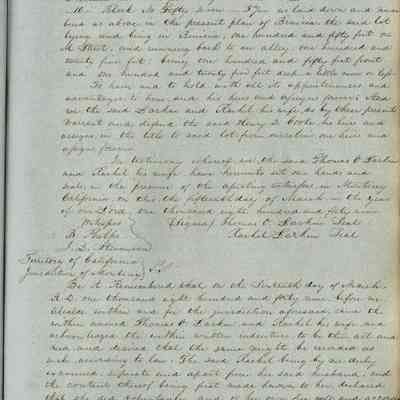 10 Block No Fifty nine – 59 – as laid down and num
bered as above in the present plan of Benicia the said lot
lying and being in Benicia, one hundred and fifty feet on
M Street, and running back to an alley one hundred and
twenty five feet: being one hundred and fifty feet front
and one hundred and twenty five feet deep a little more or less
To have and to hold with all its appurtenances and
advantages to him, and his heirs and assigns forever: And
we the said Larkin and Rachel his wife, do by these presents
warrant and defend the said Henry D. Cooke his heirs and
assigns, in the title to said lot from ourselves our heirs and
assigns forever
In testimony whereof we, the said Thomas O. Larkin
and Rachel his wife have hereunto set our hands and
seals, in the presence of the witnesses in Monterey
California on this the fifteenth day of March in the year
of our Lord, one thousand eight hundred and forty nine
Witnesses (Signed) Thomas O. Larkin Seal
B. Phelps Rachel Larkin Seal
J. D. Stevenson
Territory of California
Jurisdiction of Monterey SS
Be it Remembered that on the Sixteenth day of March
A D one thousand eight hundred and forty nine before me
Alcalde within and for the jurisdiction aforesaid, came the
within named Thomas O. Larkin and Rachel his wife and
acknowledged the within written indenture to be their act and
deed and desired that the same might be recorded as
such according to law. The said Rachel being by me duly
examined separate and apart from her said husband, and
the contents thereof being first made known to her declared
that she did voluntarily and of her own free will and accord